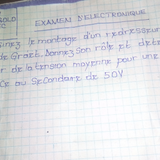 SOLO EXAMEN D'ELECTRONIQUE
sinez le montage d'un redresseur
de Graet. Donnez son rôle et dete
r de la tension moyenne pour une
ce au secondaire de 50V